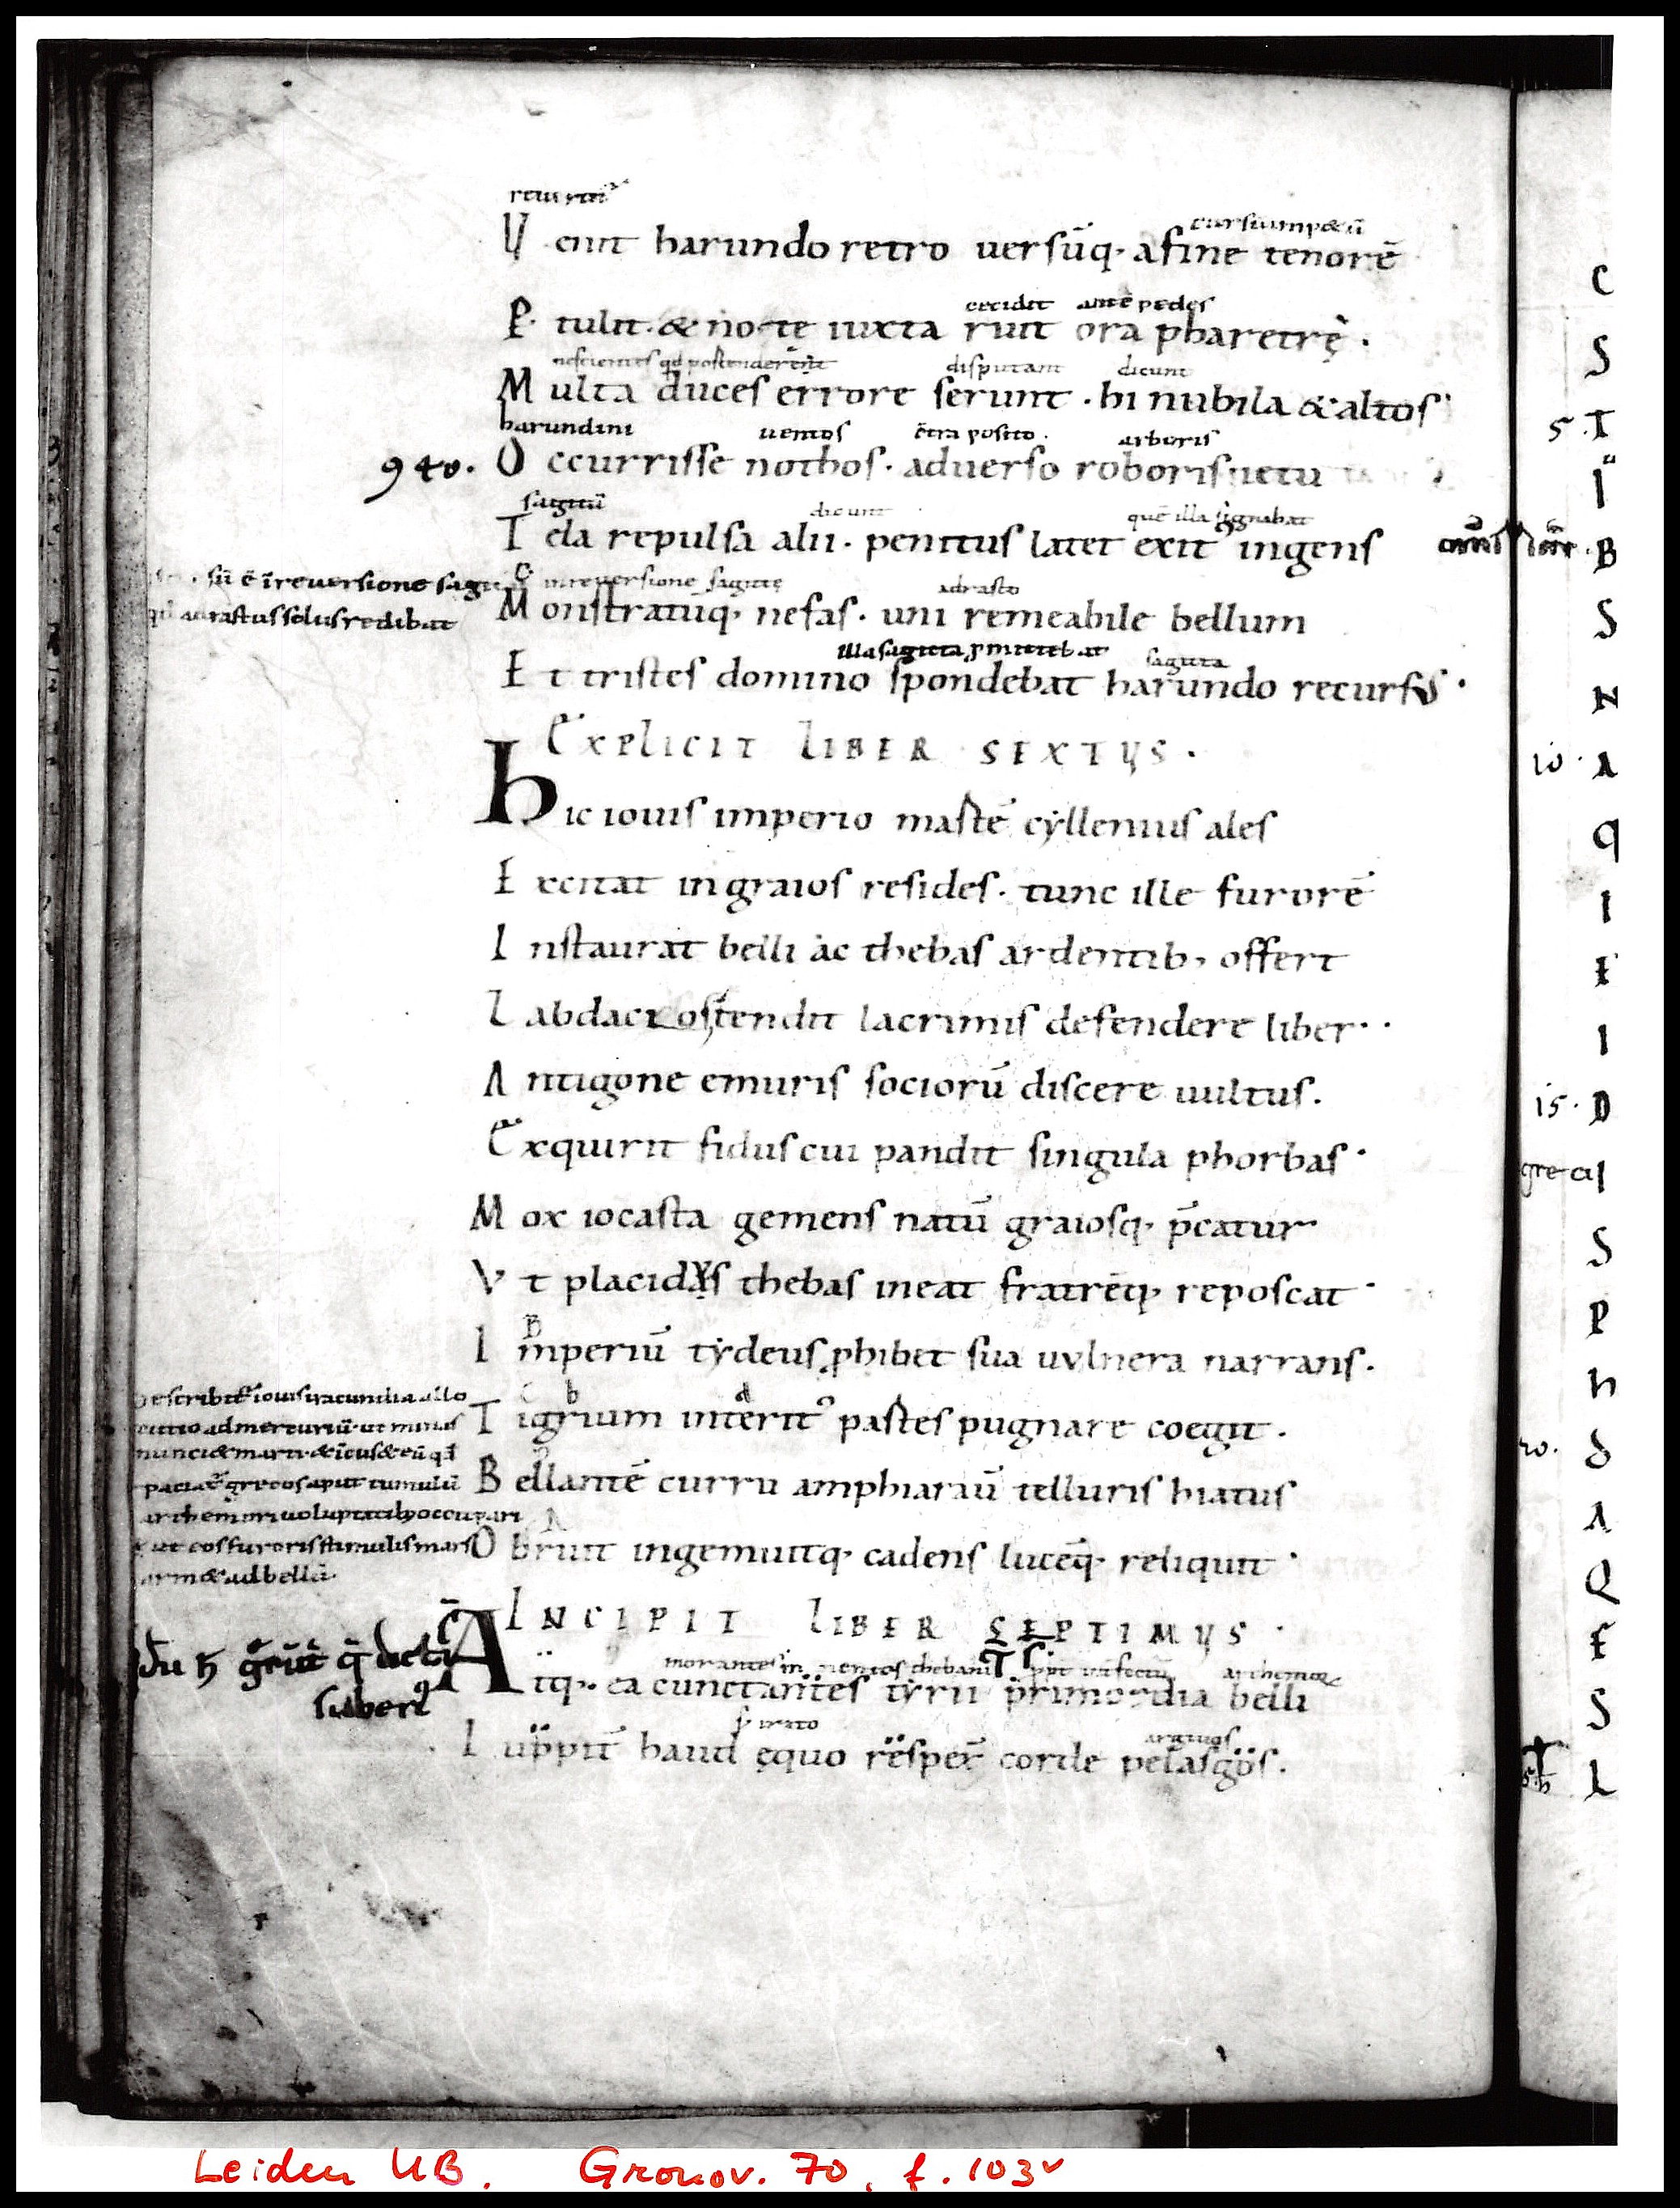 reuertitᷣ
cursū impetū
V enit harundo retro uersūq; a fine tenorē
cecidit ante pedes
P tulit. & note iuxta ruit ora pharetrę.
nescientes qd postenderent
disputant dicunt
M ulta duces errore serunt. hi nubila & altos
harundini uentos ctra posito. arboris
940. O ccurrisse nothos. aduerso roboris ictu
sagittā
dicunt quē illa signabat
T ela repulsa alii. penitus latet exit ingens
sū ē ī reuersione sagi
in reuersione sagittę adrasto
M onstratūq; nefas. uni remeabile bellum
adrastus solus redibat
illa sagitta ꝓmittebat sagitta
E t tristes domino spondebat harundo recursus.
EXPLICIT LIBER SEXTVS.
Hic iouis imperio mastē cyllenius ales
E xcitat in graios resides. tunc ille furorē
I nstaurat belli ac thebas ardentib; offert
L abdaci ostendit lacrimis defendere liber..
A ntigone e muris sociorū discere uultus.
E xquirit fidus cui pandit singula phorbas.
M ox iocasta gemens natū graiosq; p̄catur
V t placidus thebas ineat fratrēq; reposcat
B
I mperiū tydeus ꝓhibet sua uulnera narrans.
c b d
T igrium interitꝰ pastes pugnare coegit.
B ellantē curru amphiaraū telluris hiatus
A
O bruit ingemuitq; cadens lucēq; reliquit.
Describitᷣ iouis iracundia allo
cutio ad mercuriū. ut minas
nunciet marti. & īcuset eū qd
patiatᷣ grecos aput tumulū
archemori uoluptatib; occupari
& ut eos furoris stimulis mars
armet ad bellū.
INCIPIT LIBER SEPTIMVS.
morantes in thebani archemori
A tq; ea cunctantes tyrii primordia belli
irato argiuos
I uppit̄ haud ęquo respex̄ corde pelasgos.
C
S
5. T
I
B
S
N
10. A
Q
I
E
I
15. D
greci I
S
P
H
20. D
A
Q
E
S
L
Leiden UB. Gronov. 70, f. 103v